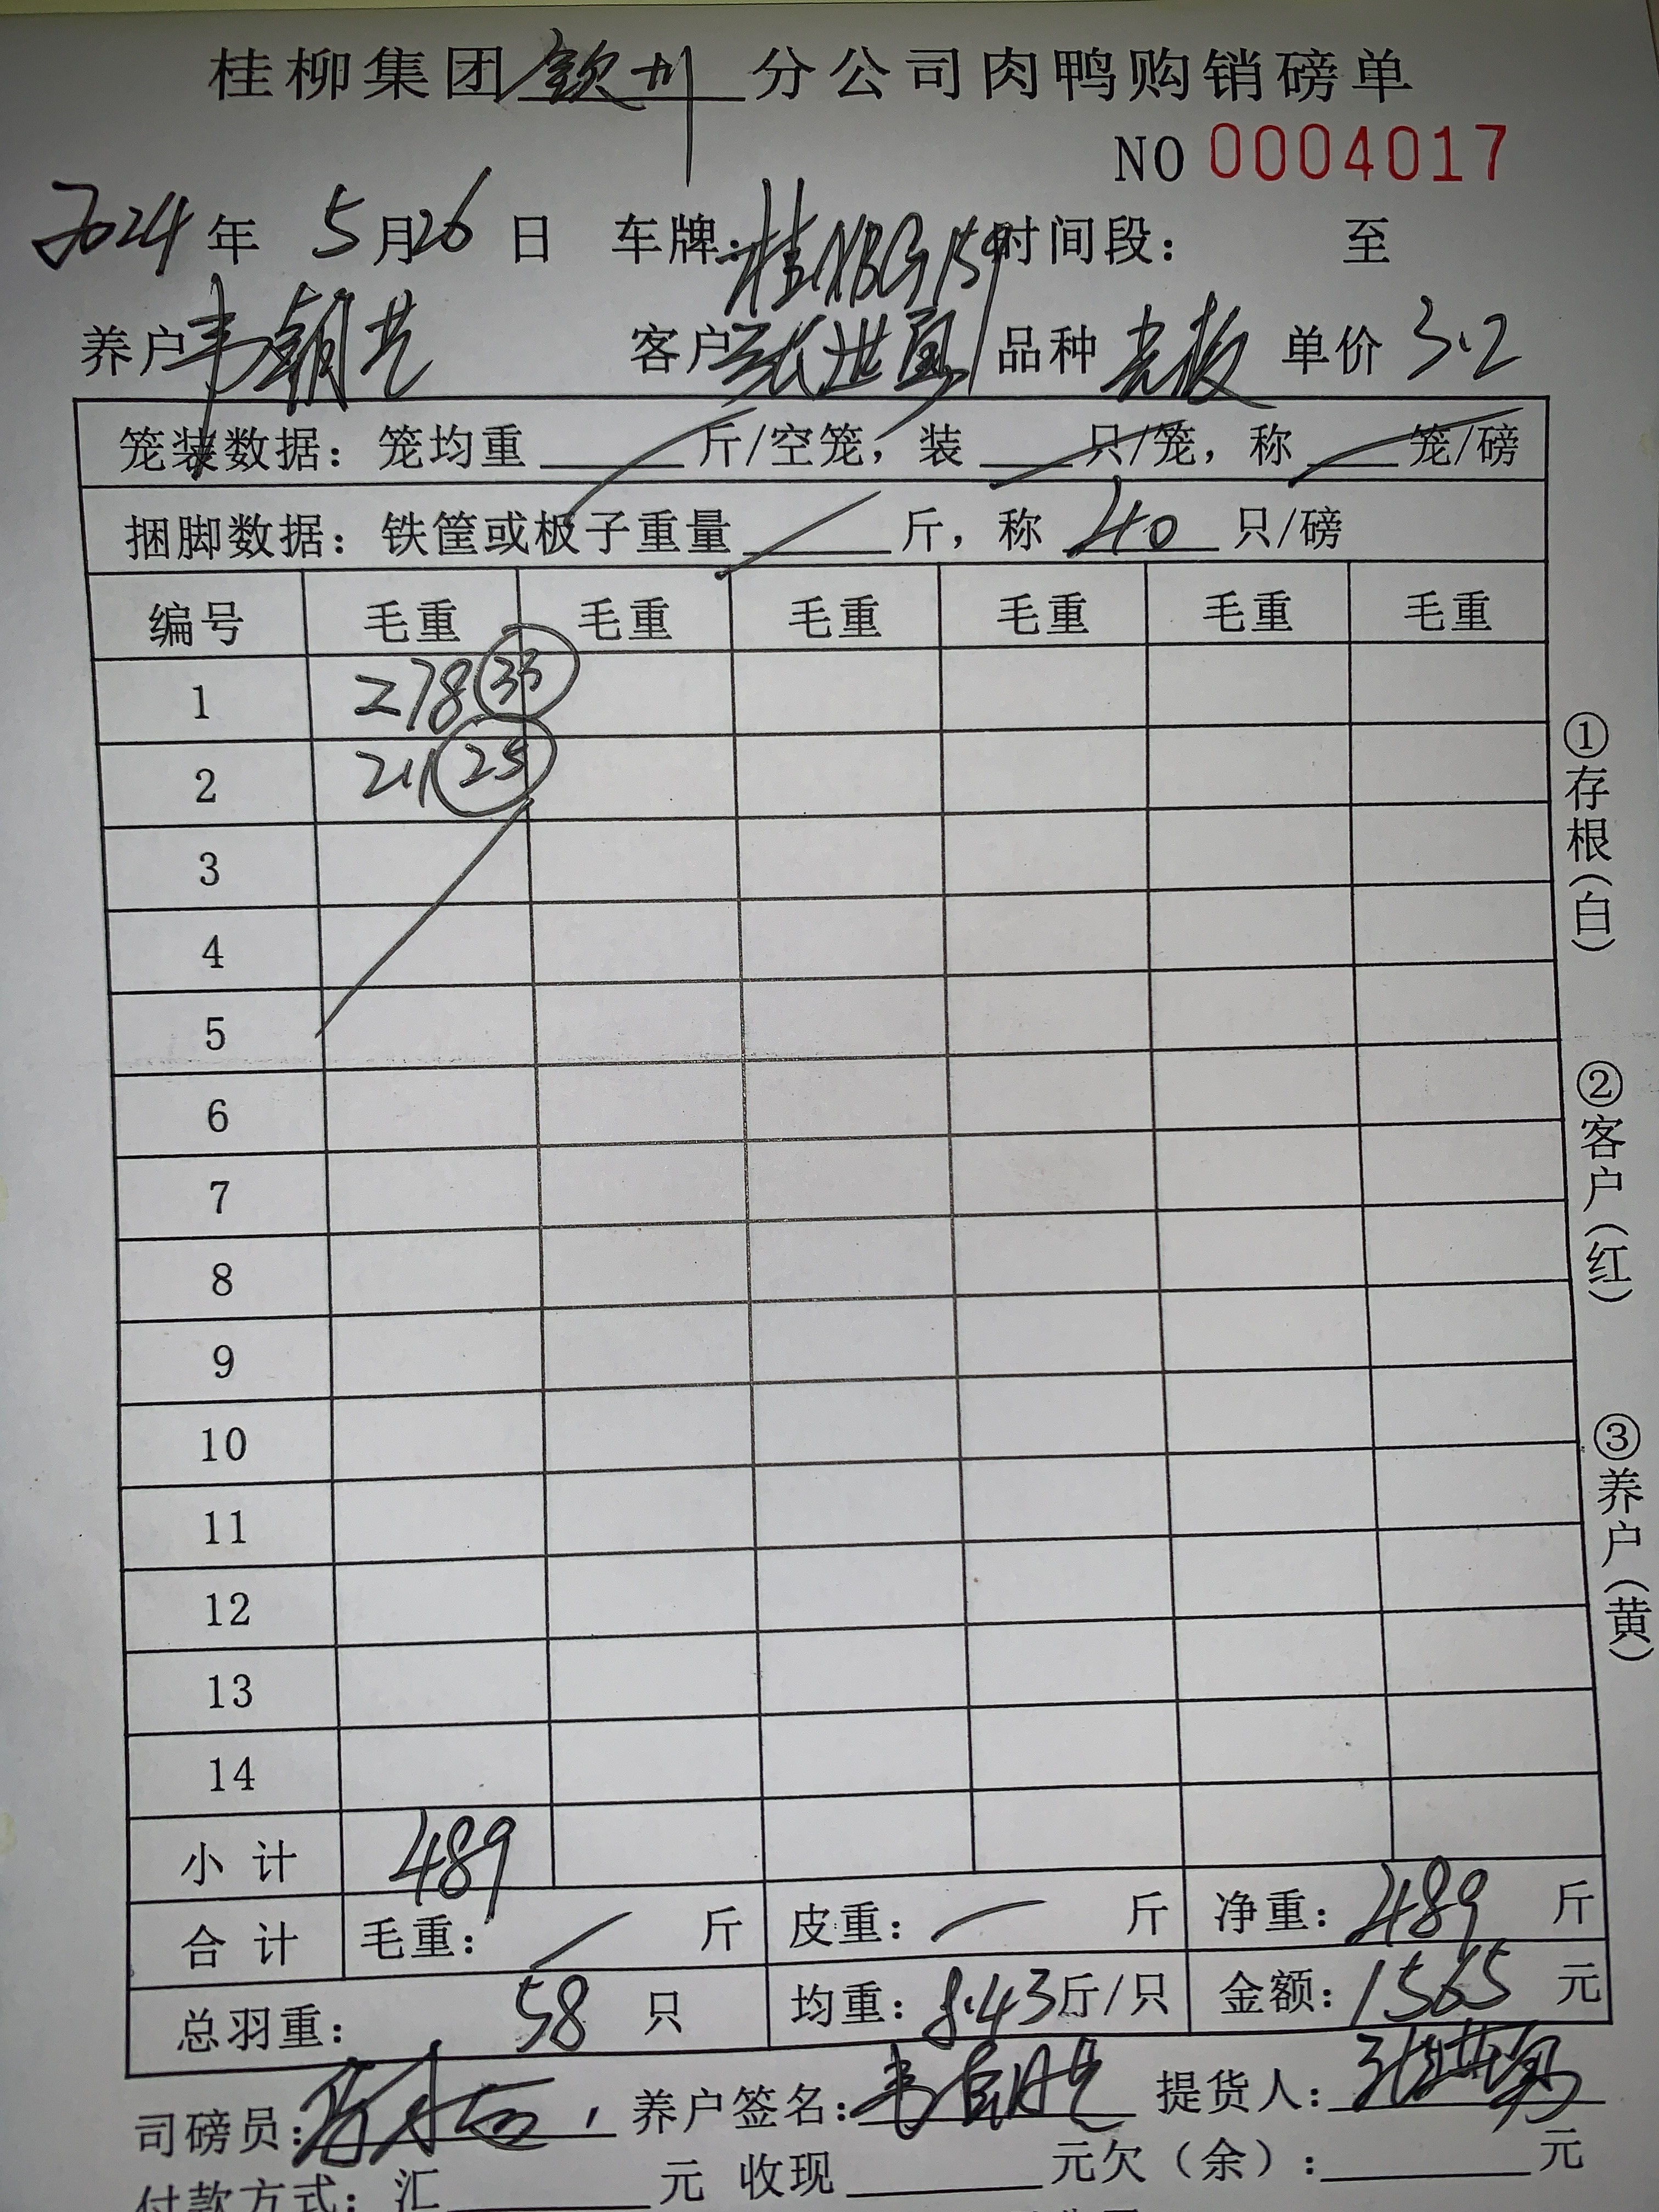 桂柳集团钦州分公司肉鸭购销磅单
NO 0004017
2024年 5月26日 车牌:桂NBG159 时间段: 至
养户韦朝芝 客户张世勇 品种老板 单价3.2
笼装数据:笼均重 斤/空笼,装 只/笼,称 笼/磅
捆脚数据:铁筐或板子重量 斤,称 40 只/磅
编号 毛重 毛重 毛重 毛重 毛重 毛重
1 278 33
2 211 25
3
4
5
6
7
8
9
10
11
12
13
14
小计 489
合计 毛重: 斤 皮重: 斤 净重:489 斤
总羽重: 58 只 均重:8.43斤/只 金额:1565元
司磅员: 养户签名: 提货人:
付款方式:汇 元 收现 元欠(余): 元
①存根(白)
②客户(红)
③养户(黄)